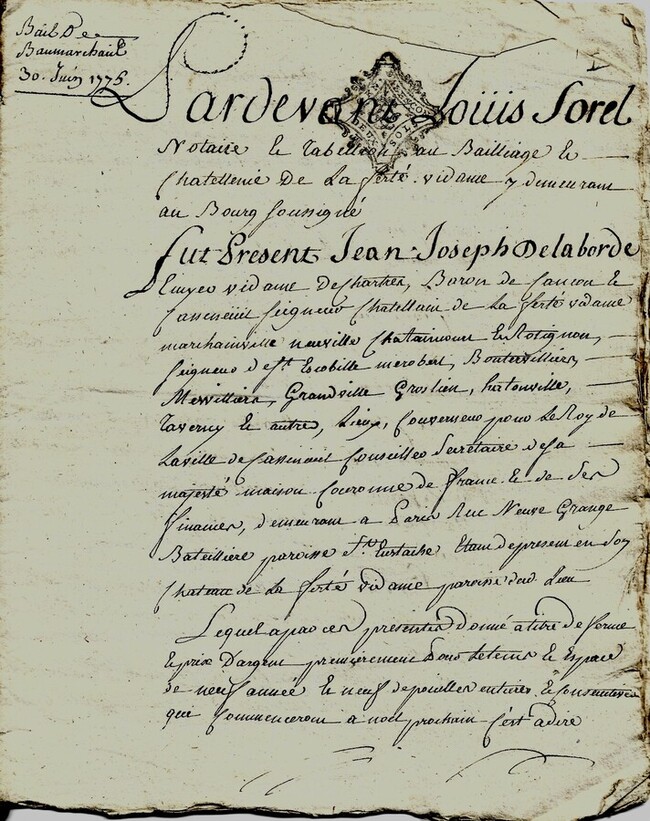 Bail De
Baumarchais
30. Juin 1775.
Pardevant Loüis Sorel
DEUX SOLS
Notaire Et Tabellion au Bailliage Et
Chatellenie De La ferté vidame y demeurant
au Bourg soussigné
fut Present Jean Joseph Delaborde
Ecuyer vidame de Chartres, Baron de
Seigneur Chatellain de La ferté vidame
marchainville neuville Chataincour
Seigneur de St. Escobille merobert, Boutervilliers,
Mervilliers, Grandville Groslieu, hertonville,
Taverny Et autres, Lieux, Gouverneur pour Le Roy de
La ville de Conseiller Secretaire de sa
majesté maison Couronne de france Et de Ses
finances, demeurant a Paris Rue Neuve Grange
Bateilliere paroisse St. Eustache Etant de present en Son
Chateau de La ferté vidame paroisse dud. Lieu
Lequel a par ces presentes donné a titre de ferme
Et prix D'argent premierement pour Le tems Et Espace
de neuf année Et neuf depoüilles entieres Et Consecutives
que Commenceront a noël prochain C'est adire